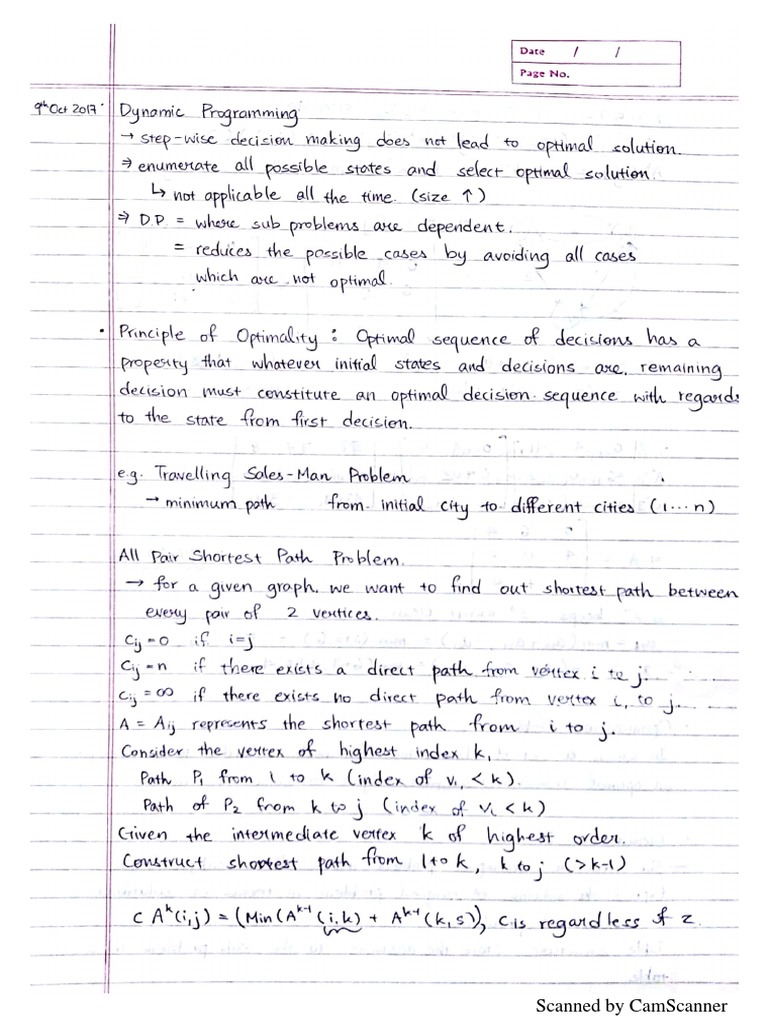 Date / /
Page No.
9th Oct 2017. Dynamic Programming
→ step-wise decision making does not lead to optimal solution.
⇒ enumerate all possible states and select optimal solution.
↳ not applicable all the time. (size ↑)
⇒ D.P = where sub problems are dependent.
= reduces the possible cases by avoiding all cases
which are not optimal.
• Principle of Optimality : Optimal sequence of decisions has a
property that whatever initial states and decisions are, remaining
decision must constitute an optimal decision sequence with regards
to the state from first decision.
e.g. Travelling Sales-Man Problem
→ minimum path from initial city to different cities (1...n)
All Pair Shortest Path Problem.
→ for a given graph. we want to find out shortest path between
every pair of 2 vertices.
Cij = 0 if i=j
Cij = n if there exists a direct path from vertex i to j.
Cij = ∞ if there exists no direct path from vertex i, to j.
A = Aij represents the shortest path from i to j.
Consider the vertex of highest index k,
Path P1 from 1 to k (index of vi, < k).
Path of P2 from k to j (index of vi < k)
Given the intermediate vertex k of highest order.
Construct shortest path from 1 to k, k to j (>k-1)
C A^k(i,j) = (Min(A^k-1(i,k) + A^k-1(k,s)), C is regardless of z.
Scanned by CamScanner